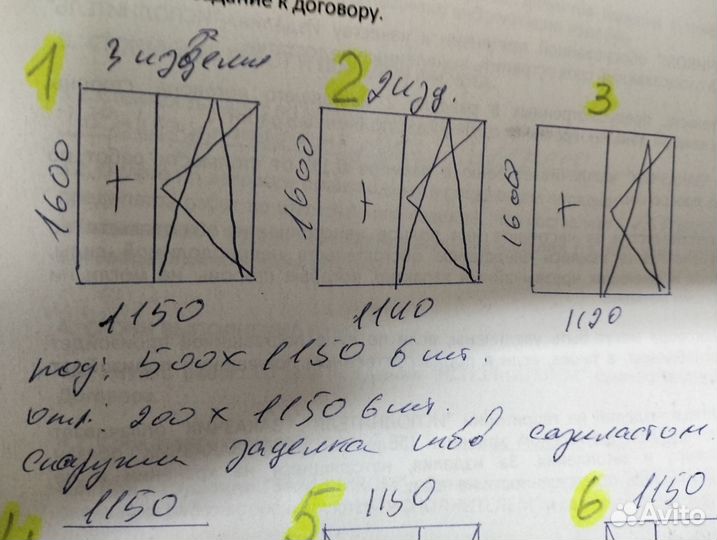 дание к договору.
1 3 изделия 2 2 изд. 3
1600 1600 1600
1150 1140 1120
под: 500 х 1150 6 шт.
отл: 200 х 1150 6 шт.
снаружи заделка швов сазиластом.
4 1150 5 1150 6 1150
Avito